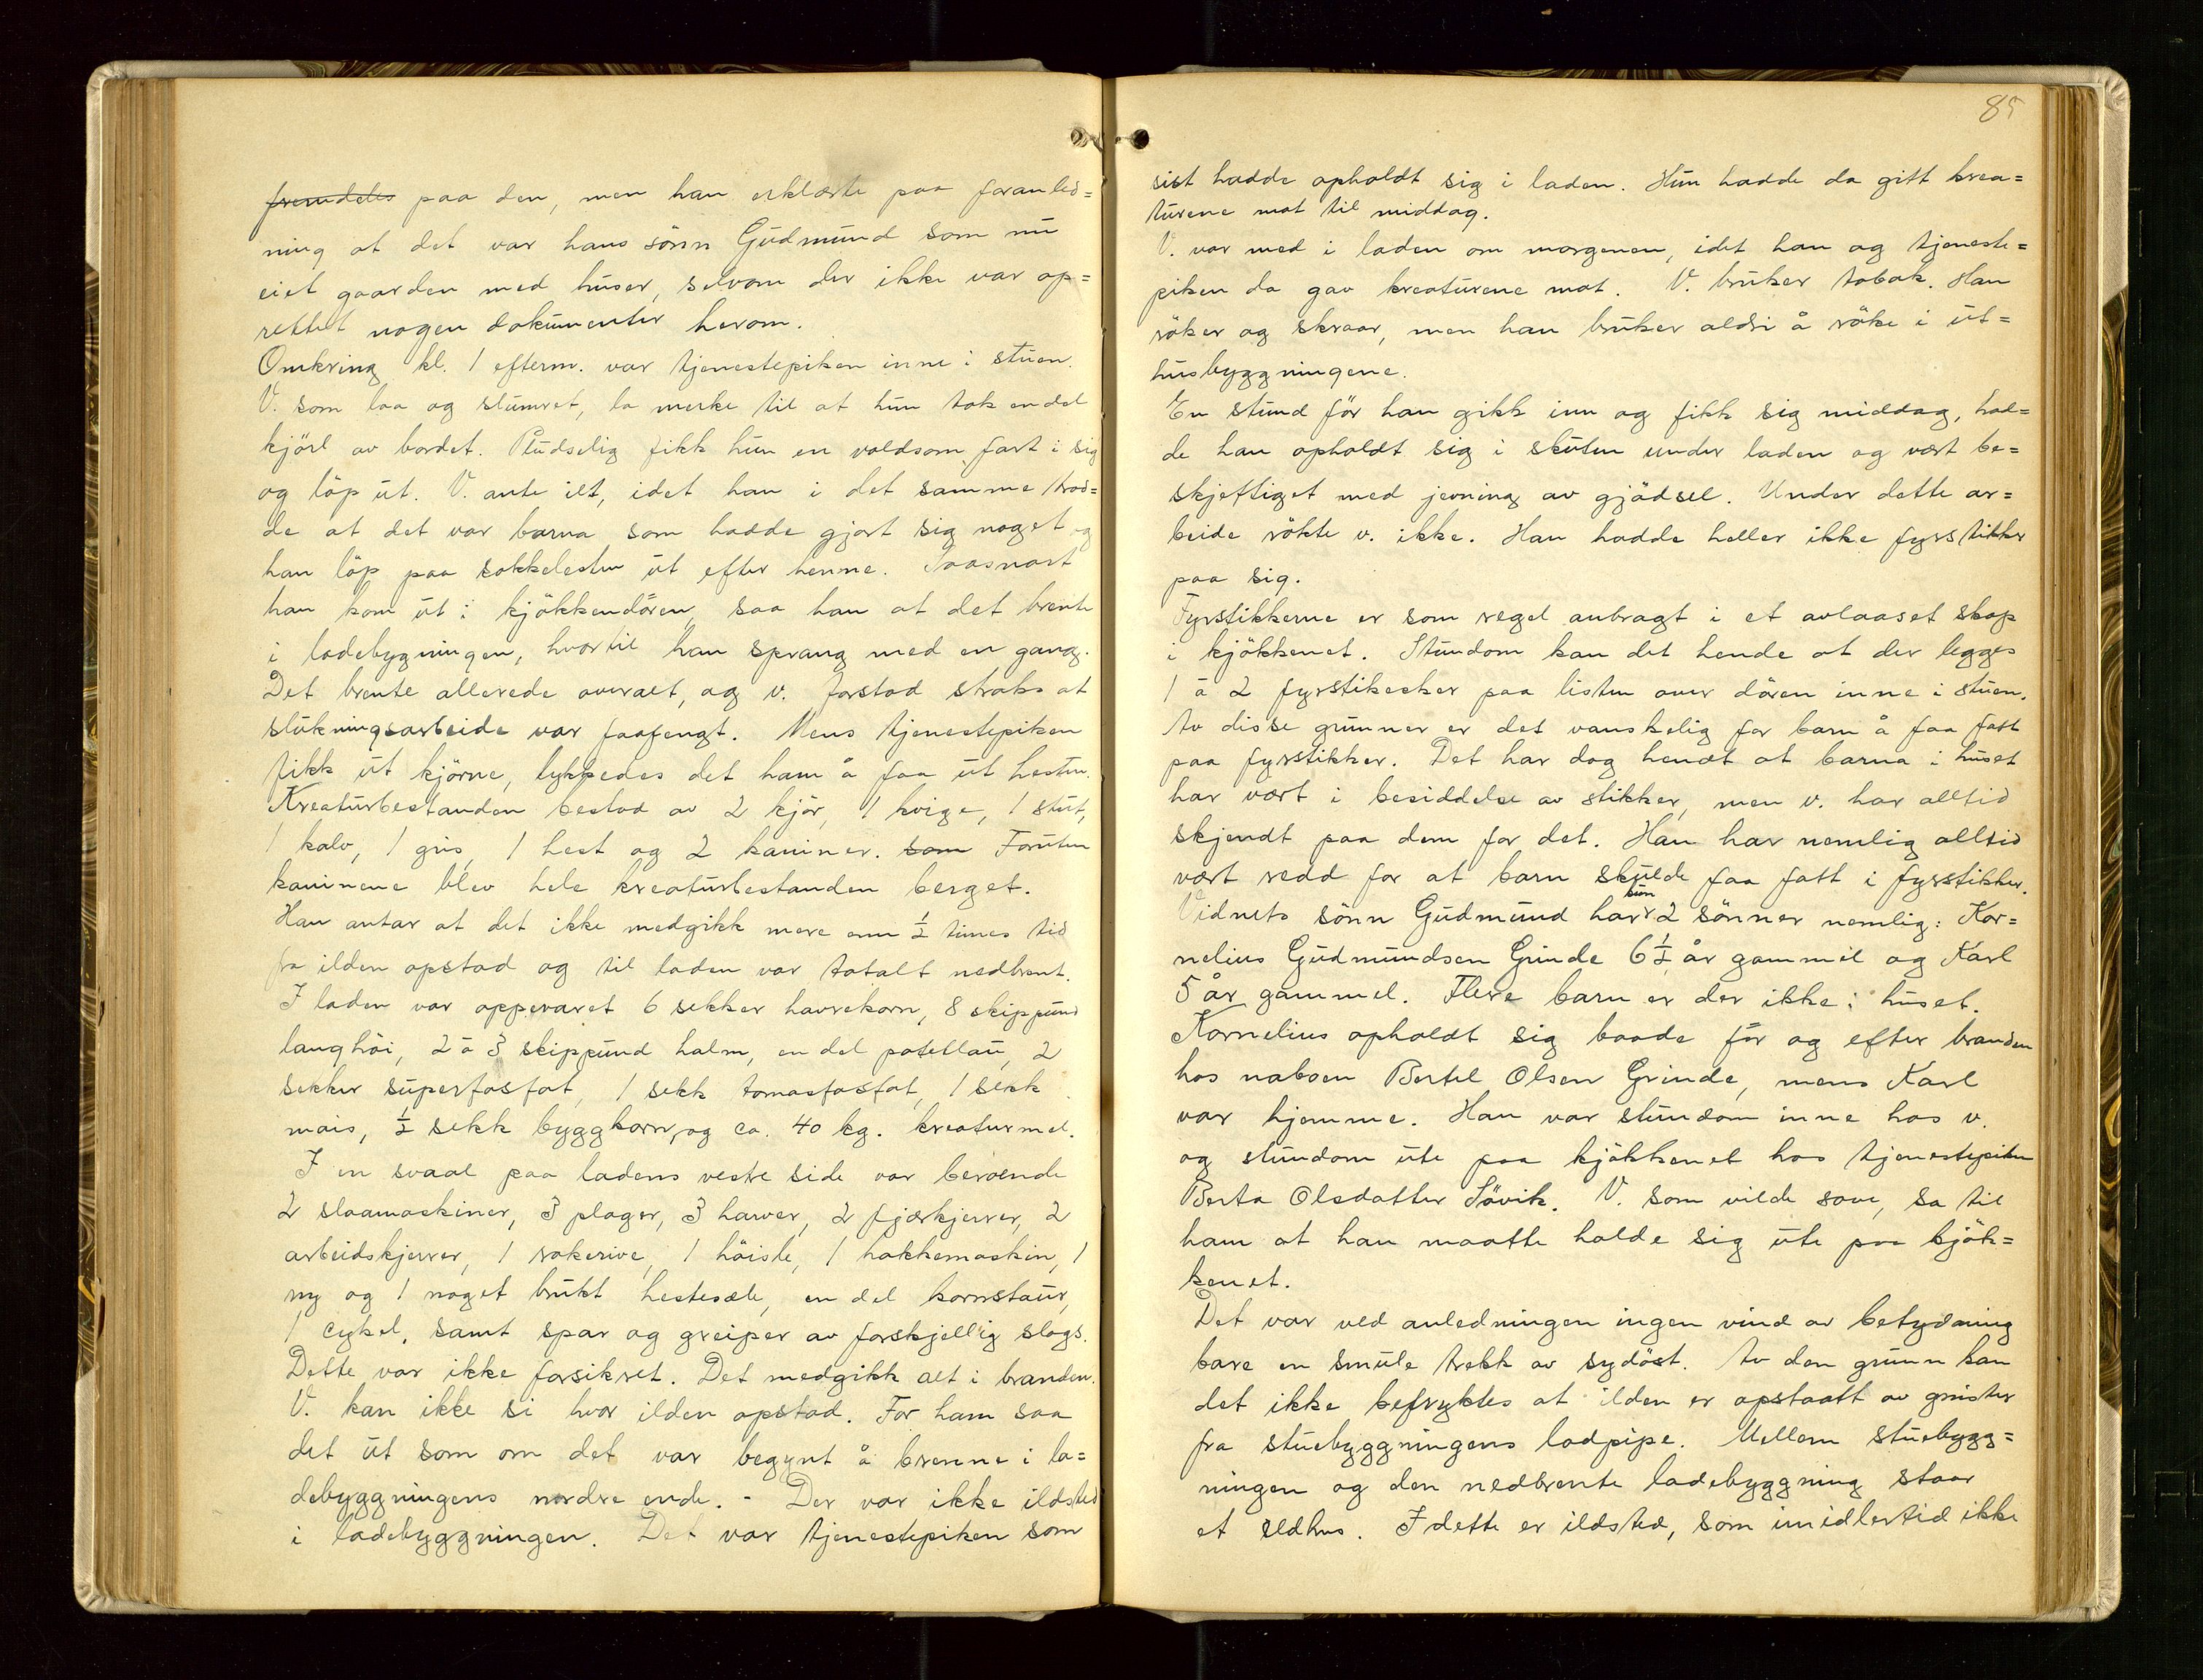 fremdeles paa den, men han erklærte paa foranled=
ning at det var hans sönn Gudmund som nu
eiet gaarden med huser, selvom der ikke var op=
rettet nogen dokumenter herom.
Omkring kl. 1 efterm. var tjenestepiken inne i stuen.
V. som laa og slumret, la merke til at hun tok en del
kjörl av bordet. Pludselig fikk hun en voldsom fart i sig
og löp ut. V. ante ilt, idet han i det samme trod=
de at det var barna som hadde gjort sig noget og
han löp paa sokkelesten ut efter henne. Saasnart
han kom ut i kjökkendören, saa han at det brente
i ladebygningen, hvortil han sprang med en gang.
Det brente allerede overalt, og v. forstod straks at
slukningsarbeide var faafengt. Mens tjenestepiken
fikk ut kjörne, lykkedes det ham å faa ut hesten.
Kreaturbestanden bestod av 2 kjör, 1 kvige, 1 stut,
1 kalv, 1 gris, 1 hest og 2 kaniner. som Foruten
kaninene blev hele kreaturbestanden berget.
Han antar at det ikke medgikk mere enn ½ times tid
fra ilden opstod og til laden var totalt nedbrent.
I laden var oppevaret 6 sekker havrekorn, 8 skippund
langhöi, 2 à 3 skippund halm, en del potetlau, 2
sekker superfosfat, 1 sekk tomasfosfat, 1 sekk
mais, ½ sekk byggkorn, og ca. 40 kg. kreaturmel.
I en svaal paa ladens vestre side var beroende
2 slaamaskiner, 3 ploger, 3 harver, 2 fjærkjerrer, 2
arbeidskjerrer, 1 rakerive, 1 höisle, 1 hakkemaskin, 1
ny og 1 noget brukt hestesæle, en del kornstaur,
1 cykel, samt spar og greiper av forskjellig slags.
Dette var ikke forsikret. Det medgikk alt i branden.
V. kan ikke si hvor ilden opstod. For ham saa
det ut som om det var begynt å brenne i la=
debyggningens nordre ende. - Der var ikke ildsted
i ladebyggningen. Det var tjenestepiken som
85
sist hadde opholdt sig i laden. Hun hadde da gitt krea=
turene mat til middag.
V. var med i laden om morgenen, idet han og tjeneste=
piken da gav kreaturene mat. V. bruker tobak. Han
röker og skraar, men han bruker aldri å röke i ut=
husbyggningene.
En stund för han gikk inn og fikk sig middag, had=
de han opholdt sig i skuten under laden og vært be=
skjeftiget med jevning av gjödsel. Under dette ar=
beide rökte v. ikke. Han hadde heller ikke fyrstikker
paa sig.
Fyrstikkerne er som regel anbragt i et avlaaset skap
i kjökkenet. Stundom kan det hende at der legges
1 à 2 fyrstikesker paa listen over dören inne i stuen.
Av disse grunner er det vanskelig for barn å faa fatt
paa fyrstikker. Det har dog hendt at barna i huset
har vært i besiddelse av stikker, men v. har alltid
skjendt paa dem for det. Han har nemlig alltid
vært redd for at barn skulde faa fatt i fyrstikker.
Vidnets sönn Gudmund har kun 2 sönner nemlig: Kor=
nelius Gudmundsen Grinde 6½ år gammel og Karl
5 år gammel. Flere barn er der ikke i huset.
Kornelius opholdt sig baade för og efter branden
hos naboen Bertel Olsen Grinde, mens Karl
var hjemme. Han var stundom inne hos v.
og stundom ute paa kjökkenet hos tjenestepiken
Berta Olsdatter Sövik. V. som vilde sove, sa til
ham at han maatte holde sig ute paa kjök=
kenet.
Det var ved anledningen ingen vind av betydning
bare en smule trekk av sydöst. Av den grunn kan
det ikke befryktes at ilden er opstaatt av gnister
fra stuebyggningens lodpipe. Mellem stuebygg=
ningen og den nedbrente ladebyggning staar
et eldhus. I dette er ildsted, som imidlertid ikke